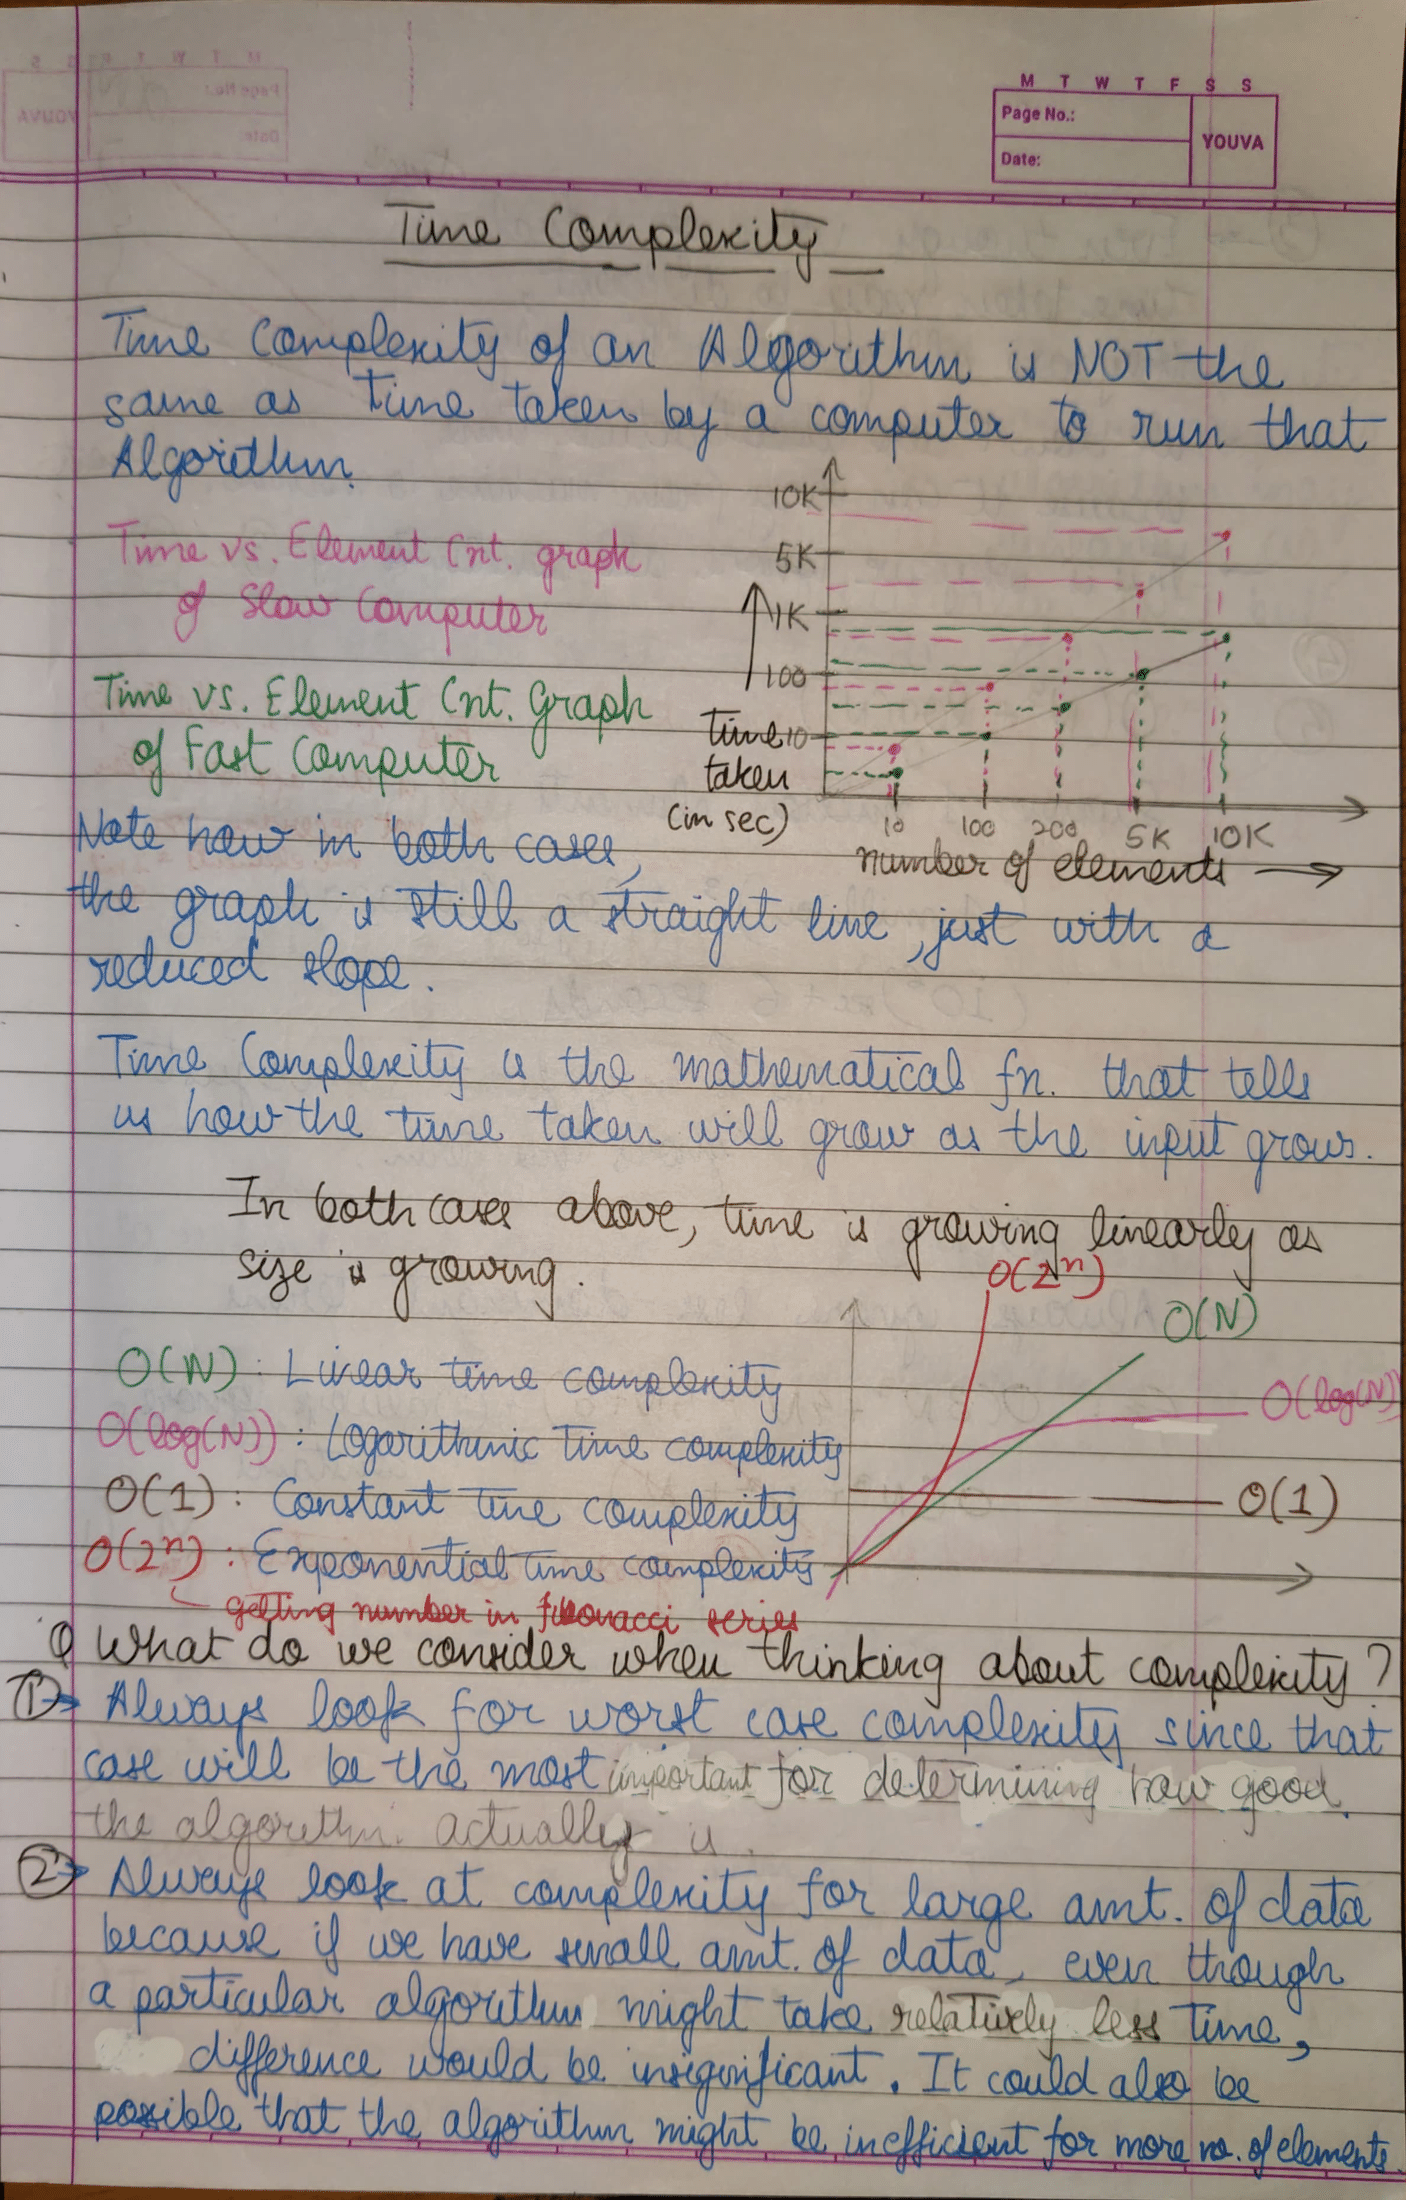 M T W T F S S
Page No.:
YOUVA
Date:
Time Complexity
Time Complexity of an Algorithm is NOT the
same as time taken by a computer to run that
Algorithm.
Time vs. Element Cnt. graph
of Slow Computer
Time vs. Element Cnt. Graph
of Fast Computer
10K
5K
1K
100
10
Time
taken
(in sec)
10 100 200 5K 10K
number of elements
Note how in both cases,
the graph is still a straight line, just with a
reduced slope.
Time Complexity is the mathematical fn. that tells
us how the time taken will grow as the input grows.
In both cases above, time is growing linearly as
size is growing.
O(2ⁿ)
O(N)
O(log(N))
O(1)
O(N) : Linear time complexity
O(log(N)) : Logarithmic Time complexity
O(1) : Constant time complexity
O(2ⁿ) : Exponential time complexity
getting number in fibonacci series
Q What do we consider when thinking about complexity?
1 Always look for worst case complexity since that
case will be the most important for determining how good
the algorithm actually is.
2 Always look at complexity for large amt. of data
because if we have small amt. of data, even though
a particular algorithm might take relatively less time,
difference would be insignificant. It could also be
possible that the algorithm might be inefficient for more no. of elements.